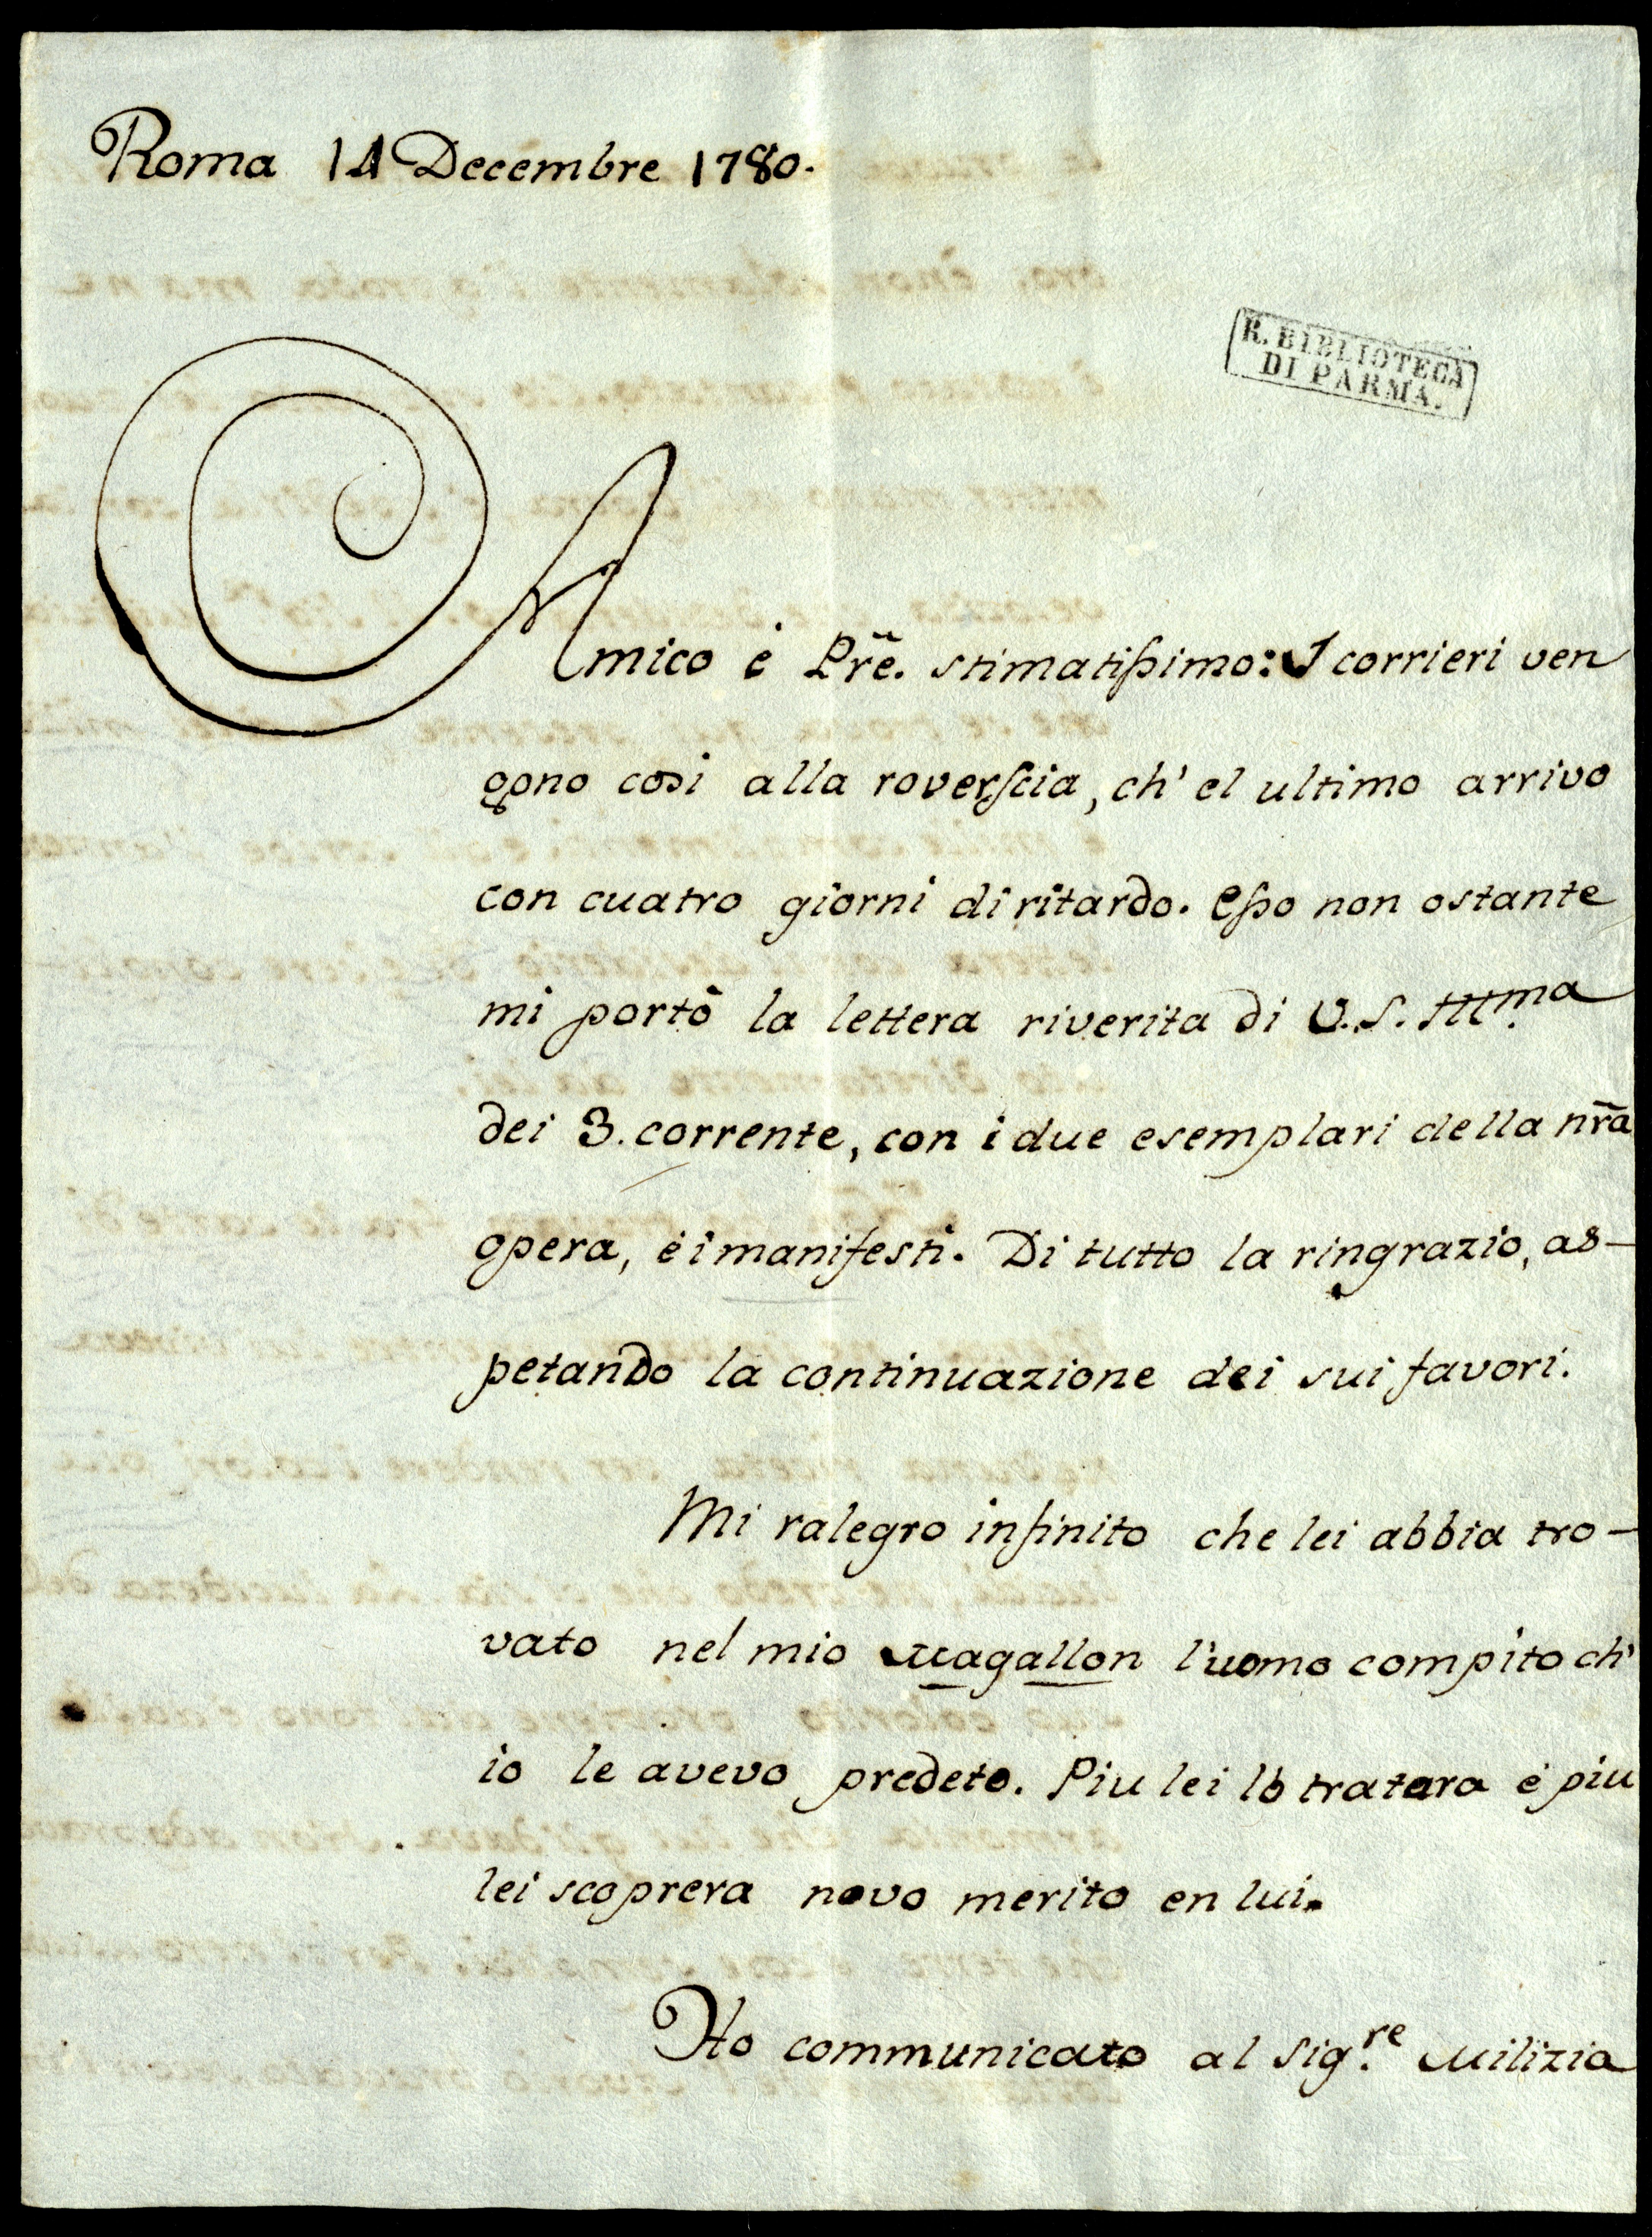 Roma 14 Decembre 1780.
R. BIBLIOTECA
DI PARMA.
Amico è Pr̃e. stimatissimo: I corrieri ven
gono così alla roverscia, ch' el ultimo arrivo
con cuatro giorni di ritardo. Esso non ostante
mi portò la lettera riverita di V.S. Illma
dei 3. corrente, con i due esemplari della nr̃a
opera, è i manifesti. Di tutto la ringrazio, as-
petando la continuazione dei sui favori.
Mi ralegro infinito che lei abbia tro-
vato nel mio Magallon l'uomo compito ch'
io le avevo predeto. Piu lei lo tratara è piu
lei scoprera novo merito en lui.
Ho communicato al Sig.re Milizia